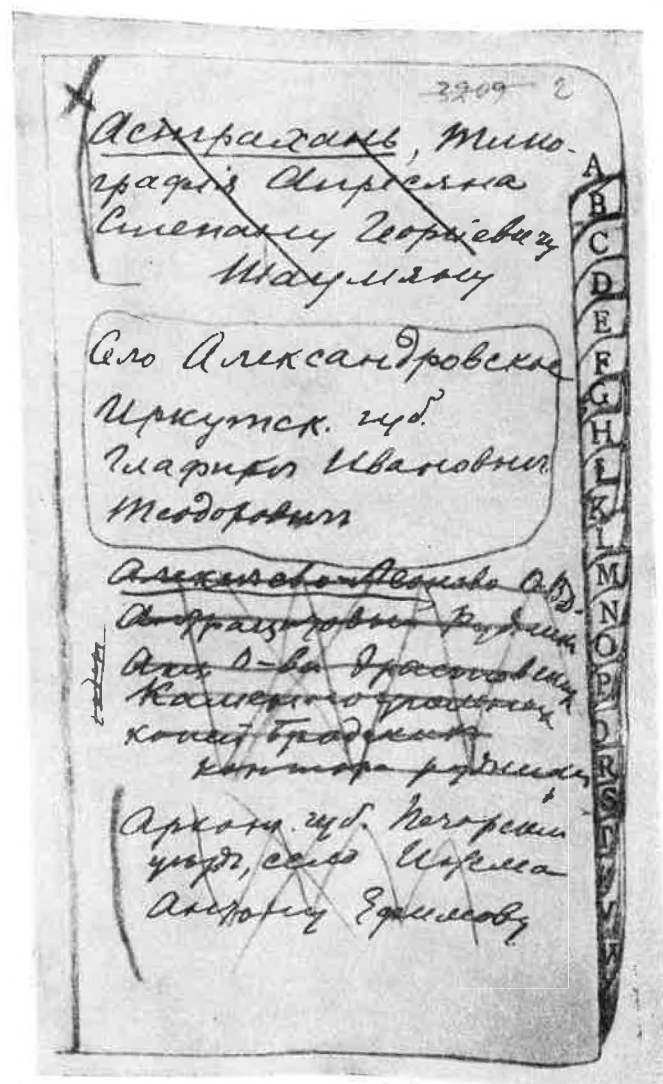 3209 2
Астрахань, Типо-
графія Апресяна
Степану Георгіевичу
Шаумяну
Село Александровское
Иркутск. губ.
Глафиры Ивановны
Теодорович
Антрацитовый рудник
Акц. О-ва
Каменноугольных
копей
контора рудника
Архан. губ. Печорскій
уѣздъ, село Ижма
Антону Ефимову
A
B
C
D
E
F
G
H
I
K
L
M
N
O
P
Q
R
S
T